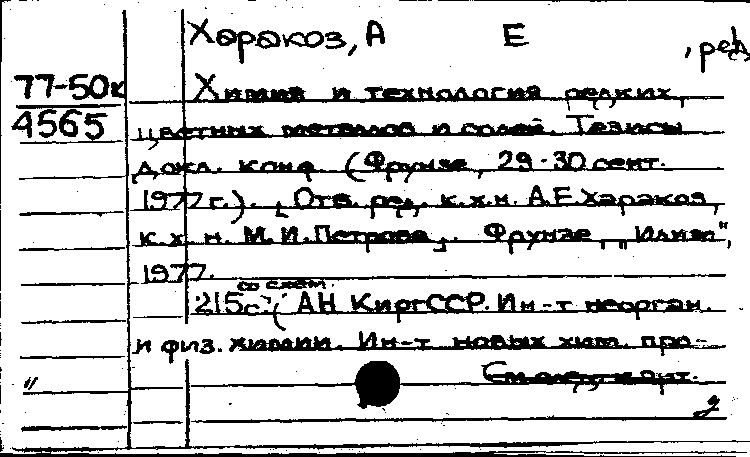 Харакоз, А Е , ред
77-50к
4565
Химия и технология редких,
цветных металлов и солей. Тезисы
докл. конф. (Фрунзе, 29-30 сент.
1977 г.). [Отв. ред. к.х.н. А.Е.Харакоз,
к.х.н. М.И.Петрова]. Фрунзе, "Илим",
1977.
со схем.
215с. (АН КиргССР. Ин-т неорган.
и физ. химии. Ин-т новых хим. про-
См. след. карт.
"
2